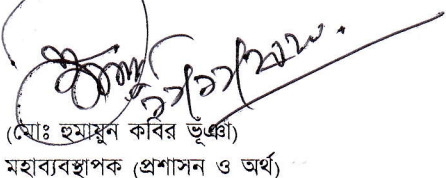 (মোঃ হুমায়ুন কবির ভূঞা)
মহাব্যবস্থাপক (প্রশাসন ও অর্থ)